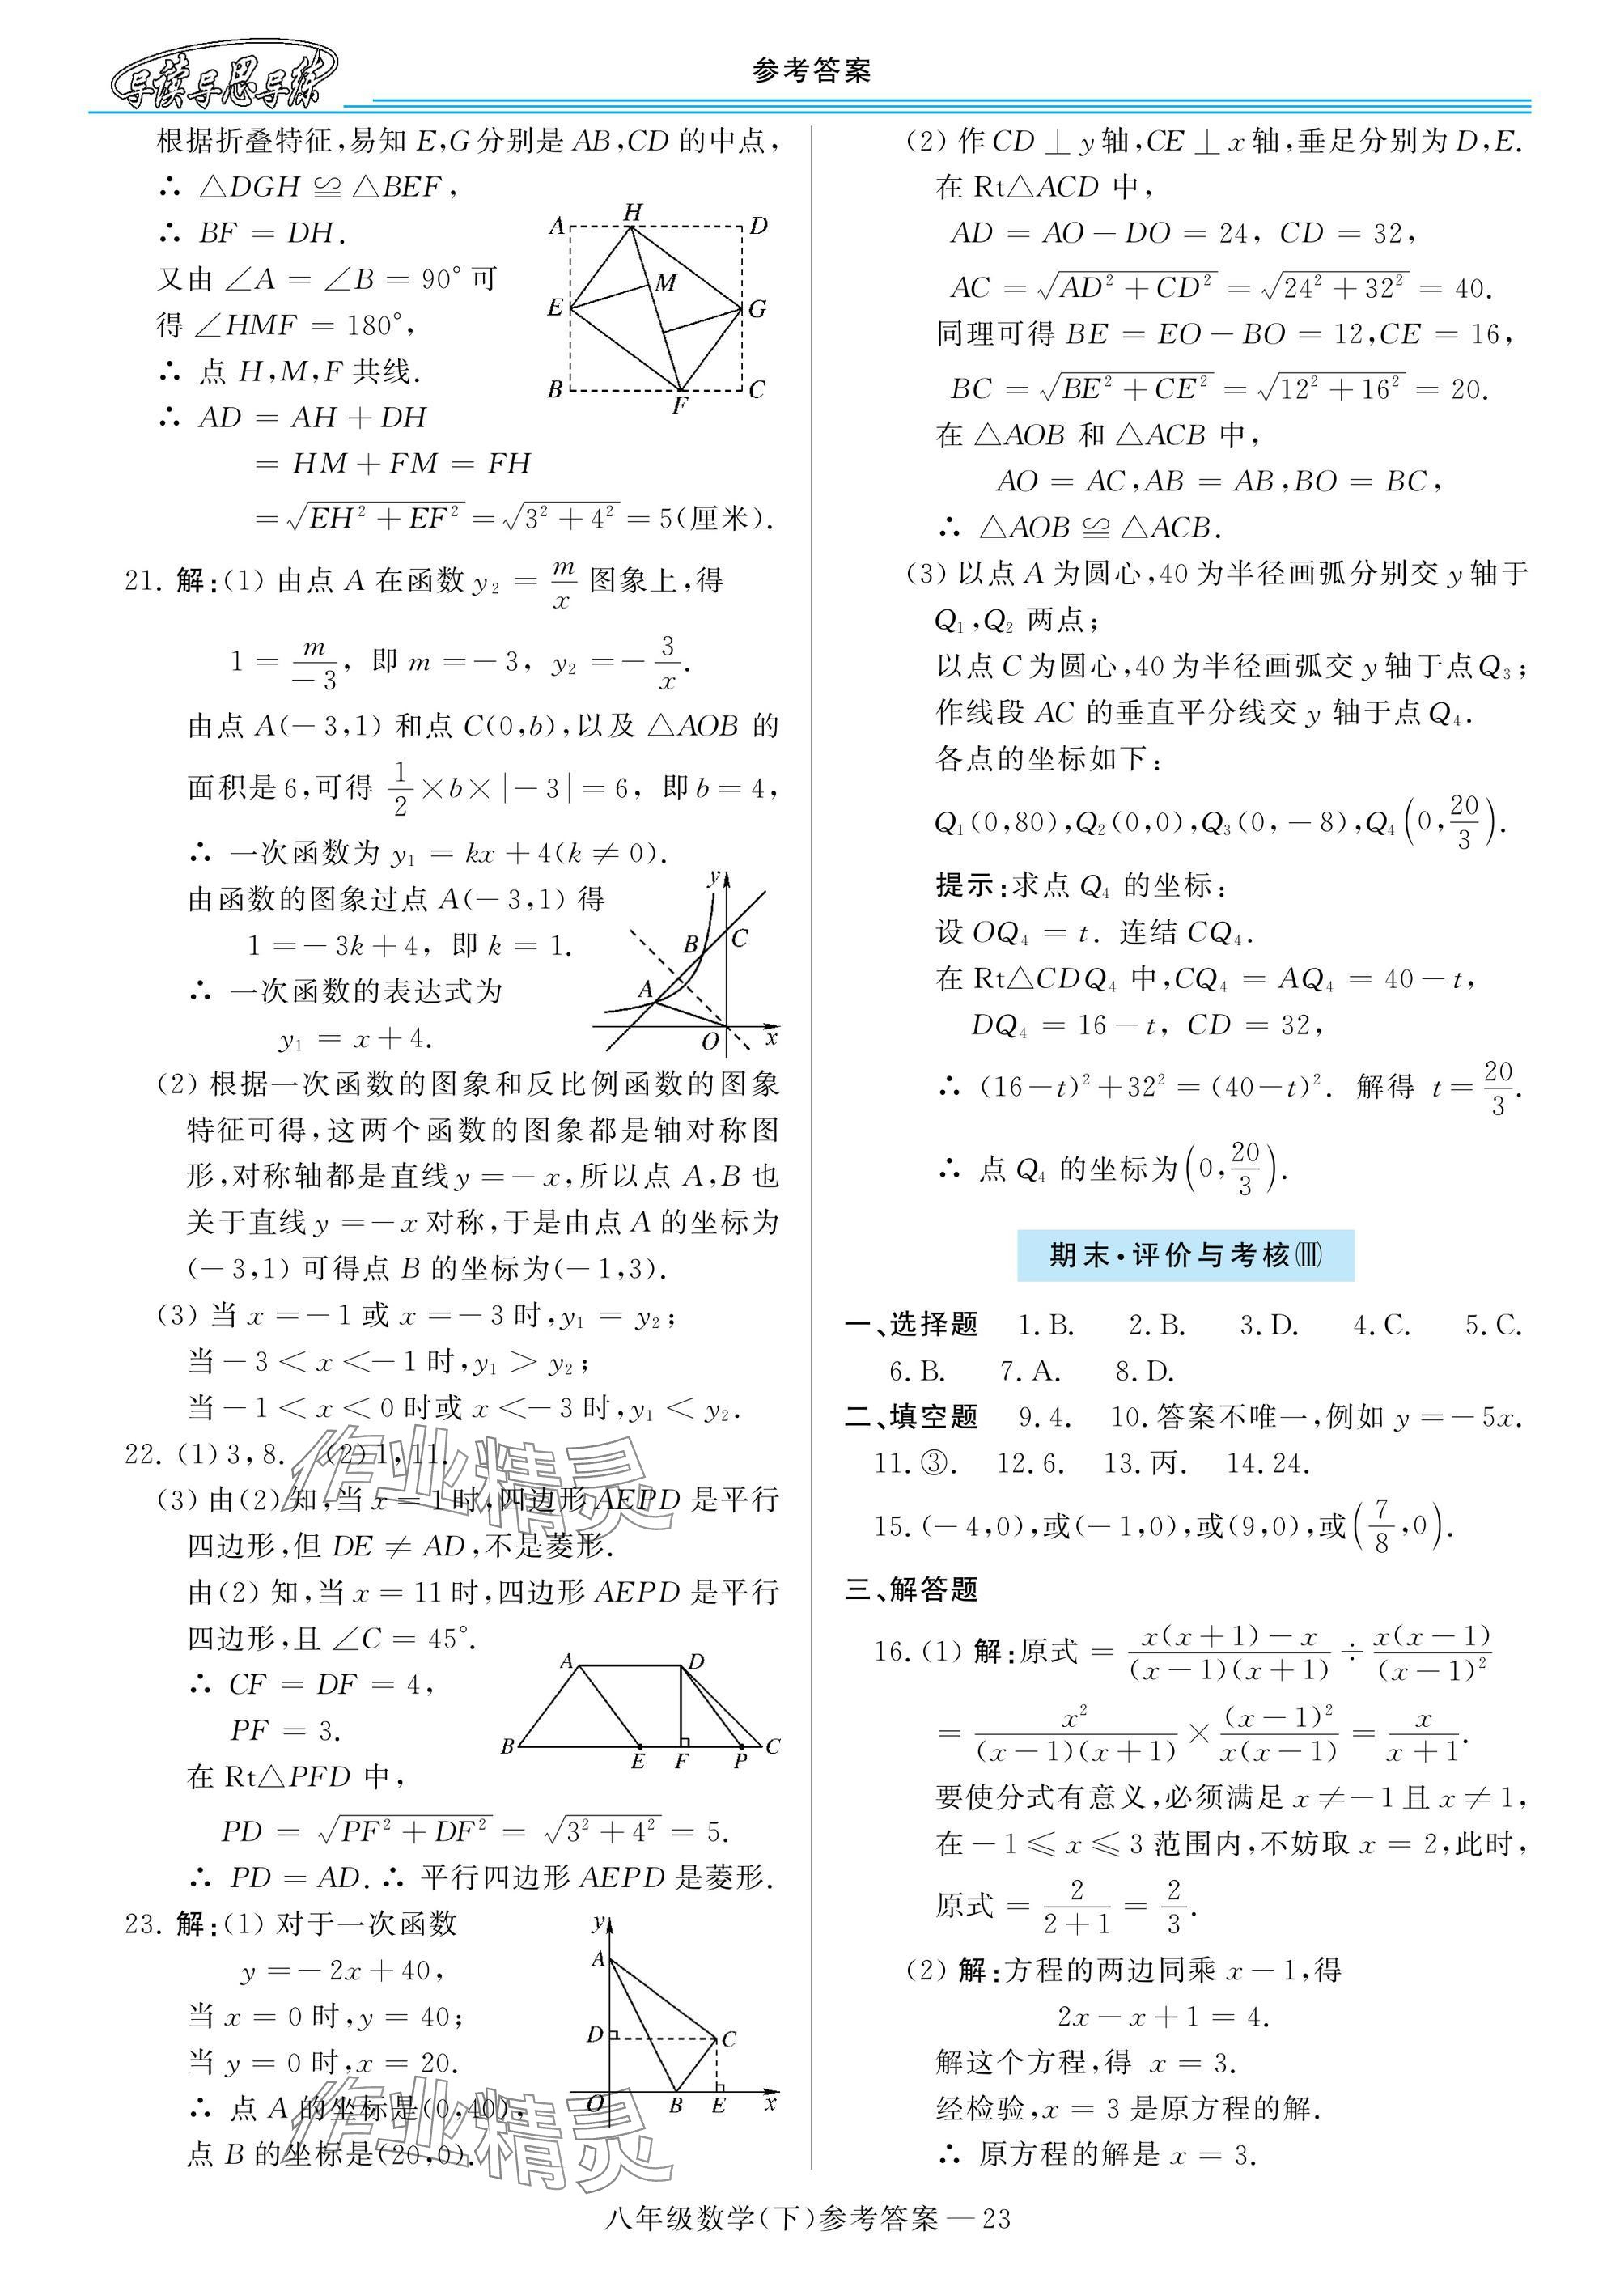 导读导思导练
参考答案
根据折叠特征,易知 E,G分别是 AB,CD 的中点,
∴ △DGH ≌ △BEF,
∴ BF = DH.
又由 ∠A = ∠B = 90° 可
得 ∠HMF = 180°,
∴ 点 H,M,F 共线.
∴ AD = AH + DH
= HM + FM = FH
= √(EH² + EF²) = √(3² + 4²) = 5(厘米).
A H D
M
E G
B F C
21. 解:(1) 由点 A 在函数 y₂ = m/x 图象上,得
1 = m/(-3), 即 m = -3, y₂ = -3/x.
由点 A(-3,1) 和点 C(0,b),以及 △AOB 的
面积是 6,可得 1/2 × b × |-3| = 6, 即 b = 4,
∴ 一次函数为 y₁ = kx + 4(k ≠ 0).
由函数的图象过点 A(-3,1) 得
1 = -3k + 4, 即 k = 1.
∴ 一次函数的表达式为
y₁ = x + 4.
y
B C
A
O x
(2) 根据一次函数的图象和反比例函数的图象
特征可得,这两个函数的图象都是轴对称图
形,对称轴都是直线 y = -x,所以点 A,B 也
关于直线 y = -x 对称,于是由点 A 的坐标为
(-3,1) 可得点 B 的坐标为(-1,3).
(3) 当 x = -1 或 x = -3 时,y₁ = y₂;
当 -3 < x < -1 时,y₁ > y₂;
当 -1 < x < 0 时或 x < -3 时,y₁ < y₂.
22. (1) 3, 8. (2) 1, 11.
(3) 由(2) 知,当 x = 1 时,四边形 AEPD 是平行
四边形,但 DE ≠ AD,不是菱形.
由(2) 知,当 x = 11 时,四边形 AEPD 是平行
四边形,且 ∠C = 45°.
∴ CF = DF = 4,
PF = 3.
在 Rt△PFD 中,
PD = √(PF² + DF²) = √(3² + 4²) = 5.
∴ PD = AD. ∴ 平行四边形 AEPD 是菱形.
A D
B E F P C
23. 解:(1) 对于一次函数
y = -2x + 40,
当 x = 0 时,y = 40;
当 y = 0 时,x = 20.
∴ 点 A 的坐标是(0,40),
点 B 的坐标是(20,0).
y
A
D C
O B E x
作业精灵
作业精灵
(2) 作 CD ⊥ y 轴,CE ⊥ x 轴,垂足分别为 D,E.
在 Rt△ACD 中,
AD = AO - DO = 24, CD = 32,
AC = √(AD² + CD²) = √(24² + 32²) = 40.
同理可得 BE = EO - BO = 12,CE = 16,
BC = √(BE² + CE²) = √(12² + 16²) = 20.
在 △AOB 和 △ACB 中,
AO = AC,AB = AB,BO = BC,
∴ △AOB ≌ △ACB.
(3) 以点 A 为圆心,40 为半径画弧分别交 y 轴于
Q₁,Q₂ 两点;
以点 C 为圆心,40 为半径画弧交 y 轴于点 Q₃;
作线段 AC 的垂直平分线交 y 轴于点 Q₄.
各点的坐标如下:
Q₁(0,80),Q₂(0,0),Q₃(0,-8),Q₄(0,20/3).
提示:求点 Q₄ 的坐标:
设 OQ₄ = t. 连结 CQ₄.
在 Rt△CDQ₄ 中,CQ₄ = AQ₄ = 40 - t,
DQ₄ = 16 - t, CD = 32,
∴ (16 - t)² + 32² = (40 - t)². 解得 t = 20/3.
∴ 点 Q₄ 的坐标为(0,20/3).
期末·评价与考核(Ⅲ)
一、选择题 1. B. 2. B. 3. D. 4. C. 5. C.
6. B. 7. A. 8. D.
二、填空题 9. 4. 10. 答案不唯一,例如 y = -5x.
11. ③. 12. 6. 13. 丙. 14. 24.
15. (-4,0),或(-1,0),或(9,0),或(7/8,0).
三、解答题
16. (1) 解:原式 = (x(x+1)-x)/((x-1)(x+1)) ÷ x(x-1)/(x-1)²
= x²/((x-1)(x+1)) × (x-1)²/(x(x-1)) = x/(x+1).
要使分式有意义,必须满足 x ≠ -1 且 x ≠ 1,
在 -1 ≤ x ≤ 3 范围内,不妨取 x = 2,此时,
原式 = 2/(2+1) = 2/3.
(2) 解:方程的两边同乘 x - 1,得
2x - x + 1 = 4.
解这个方程,得 x = 3.
经检验,x = 3 是原方程的解.
∴ 原方程的解是 x = 3.
八年级数学(下)参考答案 — 23